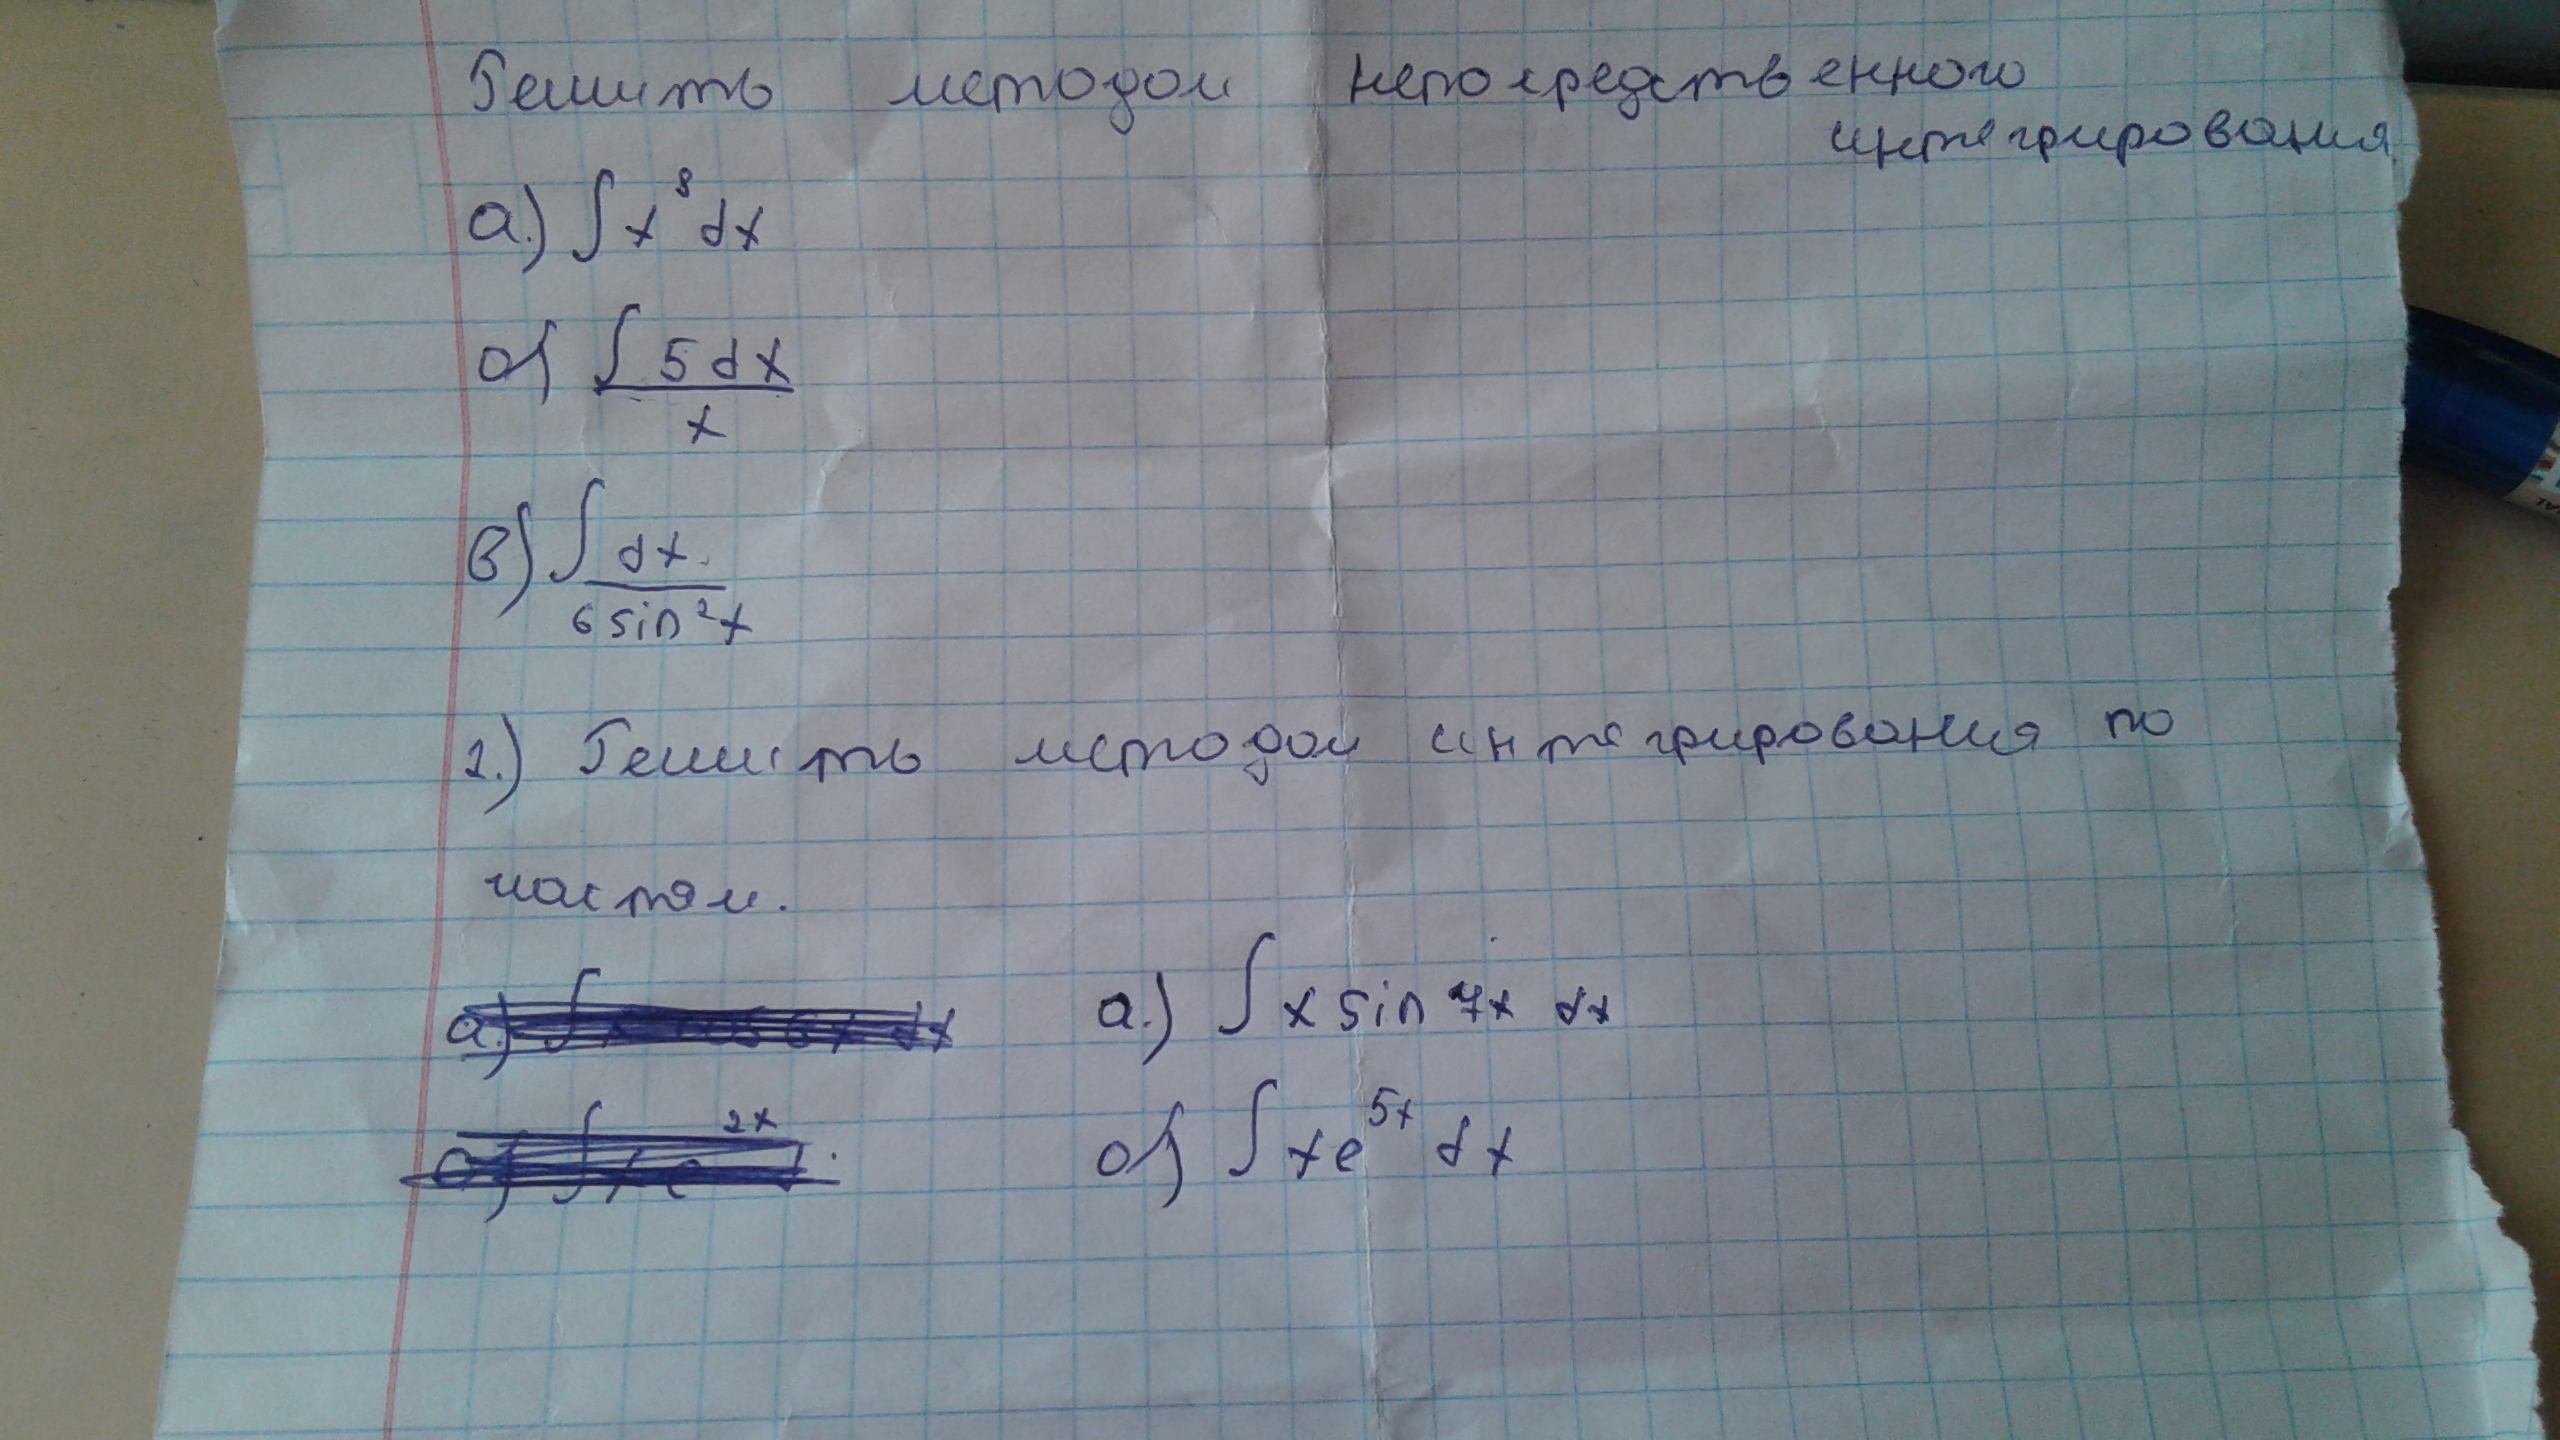 Решить методом непосредственного
интегрирования
а.) ∫ x⁸ dx
б) ∫ 5 dx / x
в) ∫ dx / 6 sin²x
2.) Решить методом интегрирования по
частям.
а.) ∫ x sin 7x dx
б) ∫ x e^{5x} dx